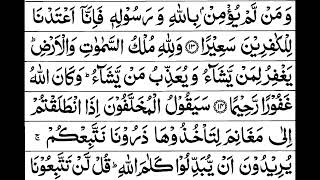 وَمَنْ لَّمْ يُؤْمِنْۢ بِاللّٰهِ وَرَسُوْلِهٖ فَاِنَّاۤ اَعْتَدْنَا
لِلْكٰفِرِيْنَ سَعِيْرًا ﴿۱۳﴾ وَلِلّٰهِ مُلْكُ السَّمٰوٰتِ وَالْاَرْضِ ؕ
يَغْفِرُ لِمَنْ يَّشَآءُ وَيُعَذِّبُ مَنْ يَّشَآءُ ؕ وَكَانَ اللّٰهُ
غَفُوْرًا رَّحِيْمًا ﴿۱۴﴾ سَيَقُوْلُ الْمُخَلَّفُوْنَ اِذَا انْطَلَقْتُمْ
اِلٰى مَغَانِمَ لِتَاْخُذُوْهَا ذَرُوْنَا نَتَّبِعْكُمْ ۚ
يُرِيْدُوْنَ اَنْ يُّبَدِّلُوْا كَلٰمَ اللّٰهِ ؕ قُلْ لَّنْ تَتَّبِعُوْنَا